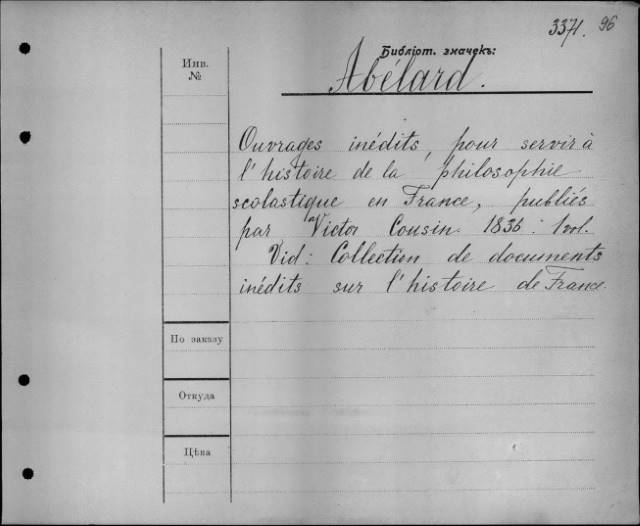 3371. 96
Библіот. значекъ:
Abélard.
Инв.
№
Ouvrages inédits, pour servir à
l'histoire de la philosophie
scolastique en France, publiés
par Victor Cousin. 1836. 1 vol.
Vid: Collection de documents
inédits sur l'histoire de France.
По заказу
Откуда
Цѣна